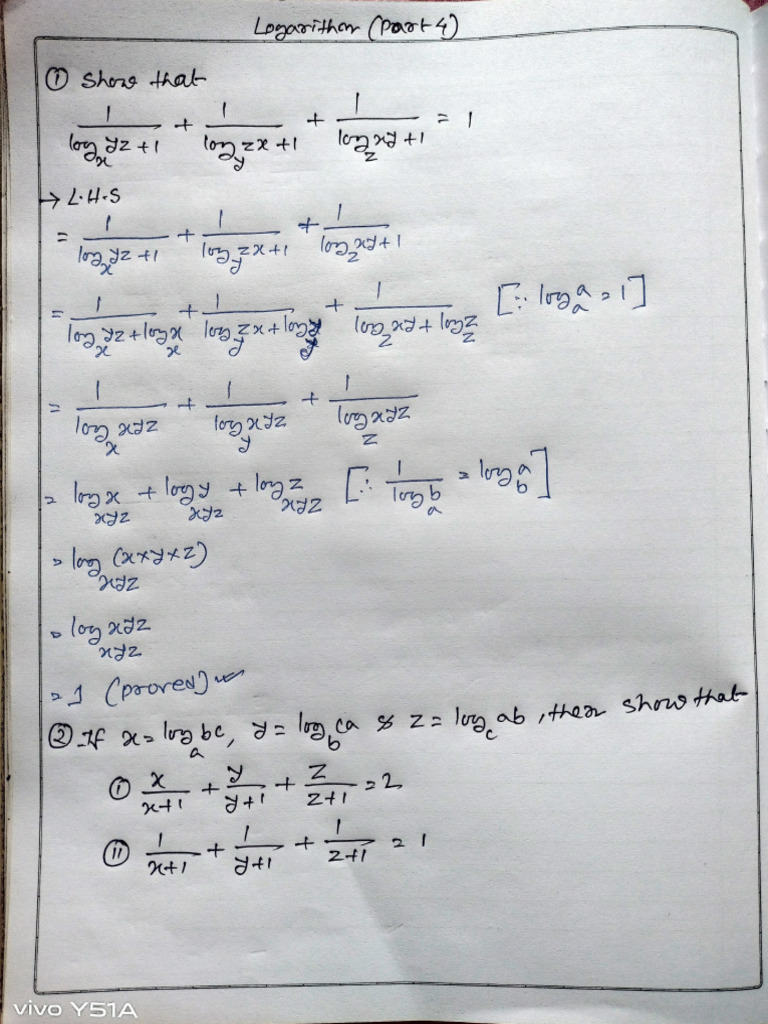 Logarithm (Part 4)
① Show that
1/(log_x yz + 1) + 1/(log_y zx + 1) + 1/(log_z xy + 1) = 1
→ L.H.S
= 1/(log_x yz + 1) + 1/(log_y zx + 1) + 1/(log_z xy + 1)
= 1/(log_x yz + log_x x) + 1/(log_y zx + log_y y) + 1/(log_z xy + log_z z) [∵ log_a a = 1]
= 1/(log_x xyz) + 1/(log_y xyz) + 1/(log_z xyz)
= log_xyz x + log_xyz y + log_xyz z [∵ 1/(log_a b) = log_b a]
= log_xyz (x×y×z)
= log_xyz xyz
= 1 (proved)
② If x = log_a bc, y = log_b ca & z = log_c ab, then show that
ⓘ x/(x+1) + y/(y+1) + z/(z+1) = 2
ⓘⓘ 1/(x+1) + 1/(y+1) + 1/(z+1) = 1
vivo Y51A